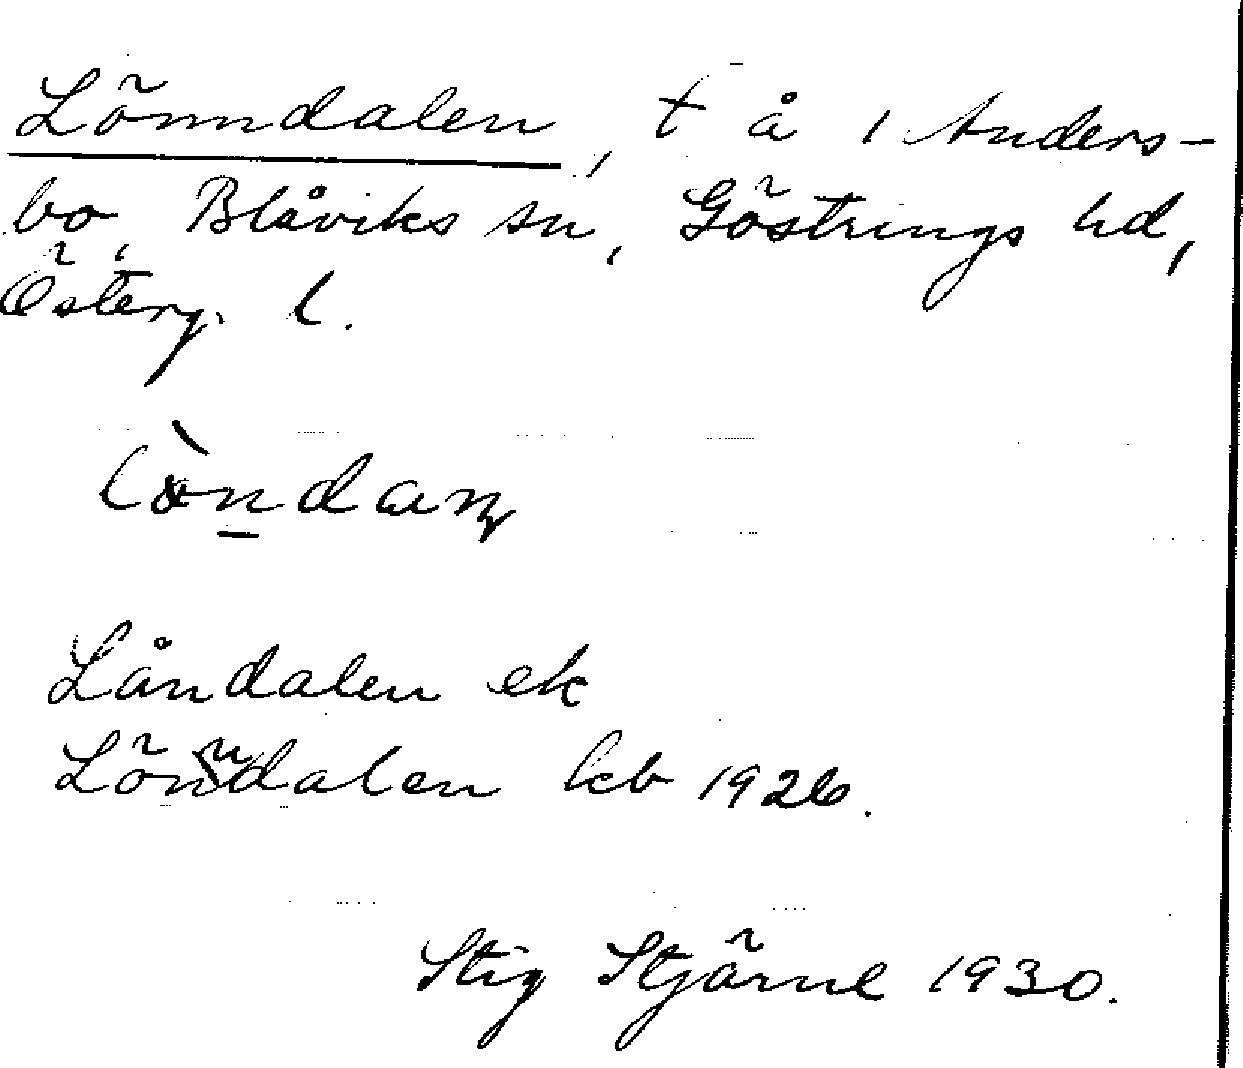 Lönndalen, t å 1 Anders-
bo, Blåviks sn, Göstrings hd,
Österg. l.
Låndalen ek
Lönndalen kb 1926.
Stig Stjärne 1930.